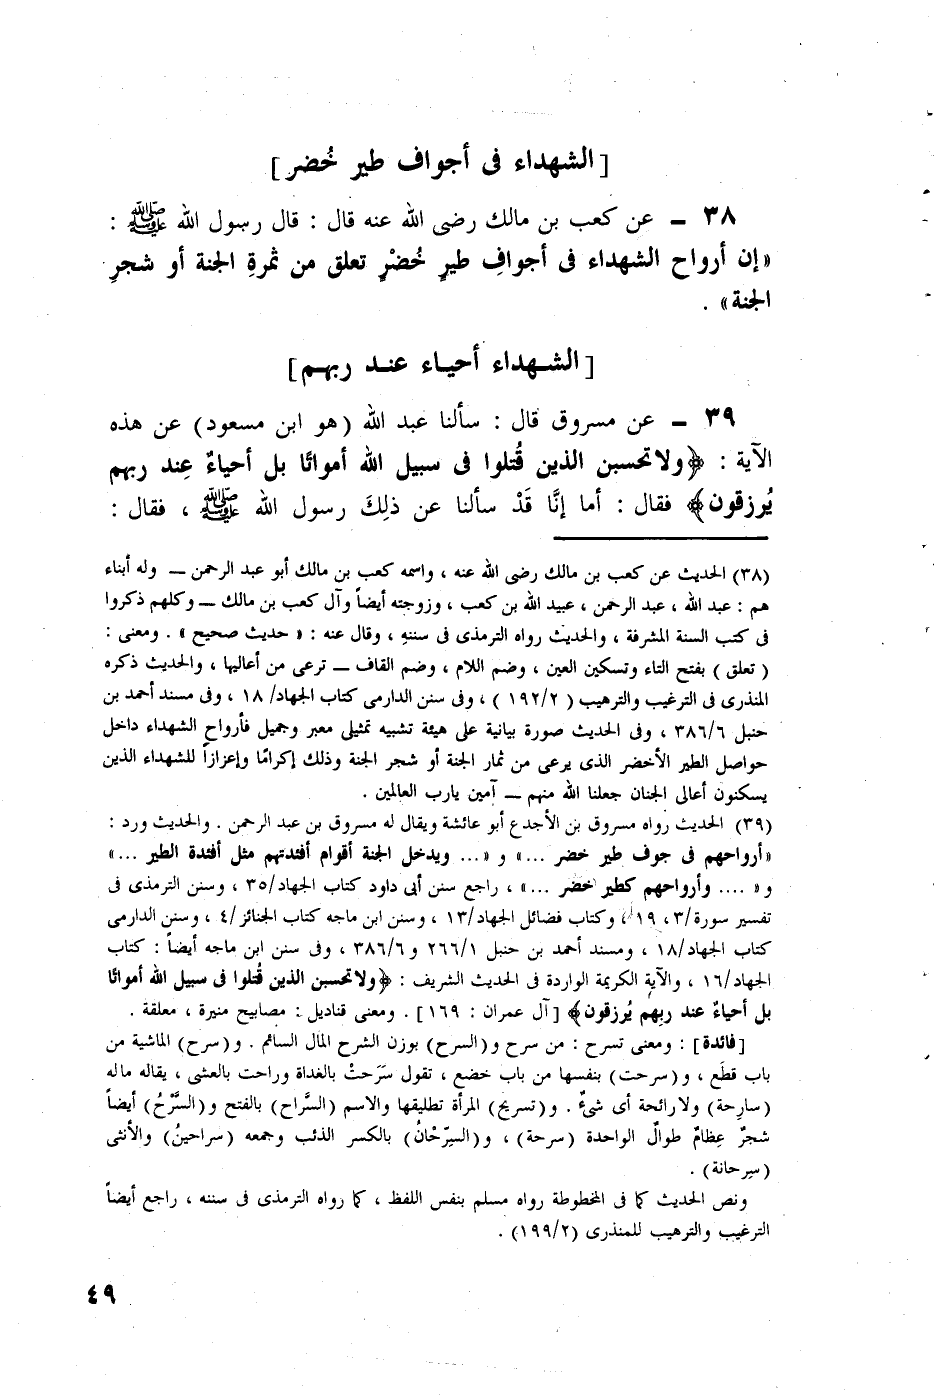 [ الشهداء فى أجواف طير خُضر ]
٣٨ ــ عن كعب بن مالك رضى الله عنه قال : قال رسول الله ﷺ :
« إن أرواح الشهداء فى أجوافِ طيرٍ خُضْرٍ تعلق من ثمرةِ الجنة أو شجرِ
الجنة » .
[ الشهداء أحياء عند ربهم ]
٣٩ ــ عن مسروق قال : سألنا عبد الله ( هو ابن مسعود ) عن هذه
الآية : ﴿ ولا تحسبن الذين قُتلوا فى سبيل الله أمواتًا بل أحياءٌ عِند ربهم
يُرزقون ﴾ فقال : أما إنَّا قَدْ سألنا عن ذلِكَ رسول الله ﷺ ، فقال :
(٣٨) الحديث عن كعب بن مالك رضى الله عنه ، واسمه كعب بن مالك أبو عبد الرحمن ــ وله أبناء
هم : عبد الله ، عبد الرحمن ، عبيد الله بن كعب ، وزوجته أيضاً وآل كعب بن مالك ــ وكلهم ذكروا
فى كتب السنة المشرفة ، والحديث رواه الترمذى فى سننه ، وقال عنه : « حديث صحيح » . ومعنى :
( تعلق ) بفتح التاء وتسكين العين ، وضم اللام ، وضم القاف ــ ترعى من أعاليها ، والحديث ذكره
المنذرى فى الترغيب والترهيب ( ١٩٢/٢ ) ، وفى سنن الدارمى كتاب الجهاد/ ١٨ ، وفى مسند أحمد بن
حنبل ٣٨٦/٦ ، وفى الحديث صورة بيانية على هيئة تشبيه تمثيلى معبر وجميل فأرواح الشهداء داخل
حواصل الطير الأخضر الذى يرعى من ثمار الجنة أو شجر الجنة وذلك إكرامًا وإعزازاً للشهداء الذين
يسكنون أعالى الجنان جعلنا الله منهم ــ آمين يارب العالمين .
(٣٩) الحديث رواه مسروق بن الأجدع أبو عائشة ويقال له مسروق بن عبد الرحمن . والحديث ورد :
« أرواحهم فى جوف طير خضر ... » و « ... ويدخل الجنة أقوام أفئدتهم مثل أفئدة الطير ... »
و « .... وأرواحهم كطير خضر ... » ، راجع سنن أبى داود كتاب الجهاد/٣٥ ، وسنن الترمذى فى
تفسير سورة/٣ ، ١٩ ، وكتاب فضائل الجهاد/١٣ ، وسنن ابن ماجه كتاب الجنائز/٤ ، وسنن الدارمى
كتاب الجهاد/١٨ ، ومسند أحمد بن حنبل ٢٦٦/١ و ٣٨٦/٦ ، وفى سنن ابن ماجه أيضاً : كتاب
الجهاد/١٦ ، والآية الكريمة الواردة فى الحديث الشريف : ﴿ ولا تحسبن الذين قُتلوا فى سبيل الله أمواتًا
بل أحياءٌ عند ربهم يُرزقون ﴾ [ آل عمران : ١٦٩ ] . ومعنى قناديل : مصابيح منيرة ، معلقة .
[ فائدة ] : ومعنى تسرح : من سرح و ( السرح ) بوزن الشرح المال السائم . و ( سرح ) الماشية من
باب قطَع ، و ( سرحت ) بنفسها من باب خضع ، تقول سَرَحتْ بالغداة وراحت بالعشى ، يقاله ماله
( سارِحة ) ولا رائحة أى شىءٌ . و ( تسريح ) المرأة تطليقها والاسم ( السَّراح ) بالفتح و ( السَّرْحُ ) أيضاً
شجرٌ عِظامٌ طوالٌ الواحدة ( سرحة ) ، و ( السِرْحَانُ ) بالكسر الذئب وجمعه ( سراحينُ ) والأنثى
( سِرحانة ) .
ونص الحديث كما فى المخطوطة رواه مسلم بنفس اللفظ ، كما رواه الترمذى فى سننه ، راجع أيضاً
الترغيب والترهيب للمنذرى ( ١٩٩/٢ ) .
٤٩